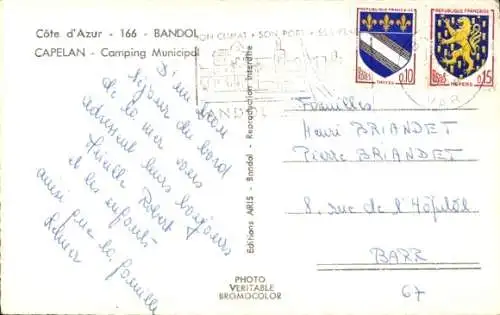 Côte d'Azur - 166 - BANDOL
CAPELAN - Camping Municipal
SON CLIMAT - SON PORT - SES PLA
BANDOL
VAR
REPUBLIQUE FRANÇAISE
POSTES
0,10
TROYES
REPUBLIQUE FRANÇAISE
POSTES
0,15
NEVERS
D'un bon
séjour du bord
de la mer vous
adressent leurs bonjours
Famille Robert
et les enfants
ainsi que la famille
Editions ARIS - Bandol - Reproduction Interdite
Familles
Henri BRIANDET
Pierre BRIANDET
8, rue de l'Hôpital
BARR
67
PHOTO
VERITABLE
BROMOCOLOR